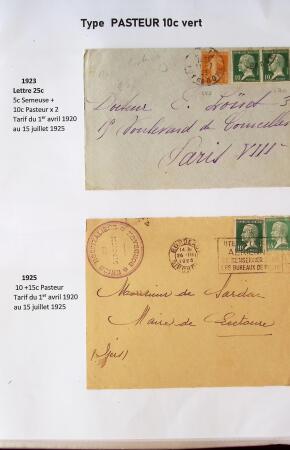 Type PASTEUR 10c vert
1923
Lettre 25c
5c Semeuse +
10c Pasteur x 2
Tarif du 1er avril 1920
au 15 juillet 1925
Docteur E.
Boulevard de Courcelles
Paris VIII
1925
10 +15c Pasteur
Tarif du 1er avril 1920
au 15 juillet 1925
BORDEAUX
1925
LES BUREAUX DE
Monsieur de Sardac
Maire de Lectoure
(Gers)